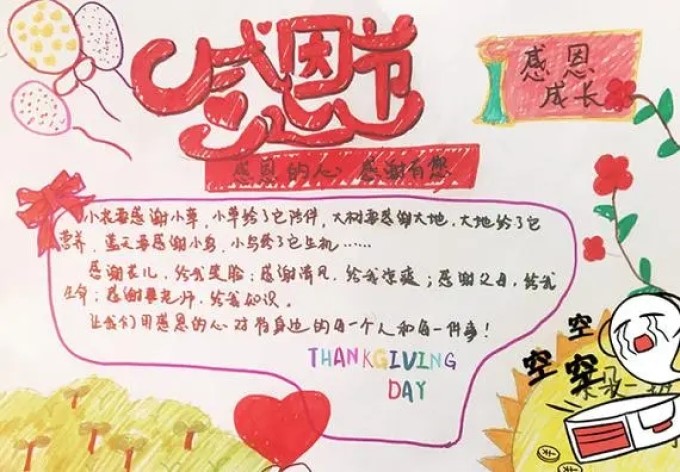 感恩节
感恩
成长
感恩的心 感谢有您
小花要感谢小草，小草给了它陪伴，大树要感谢大地，大地给了它
营养，蓝天要感谢小鸟，小鸟给了它生机……
感谢花儿，给我笑脸；感谢清风，给我凉爽；感谢父母，给我
生命；感谢老师，给我知识。
让我们用感恩的心对待身边的每一个人和每一件事！
THANKGIVING
DAY
空
空 空